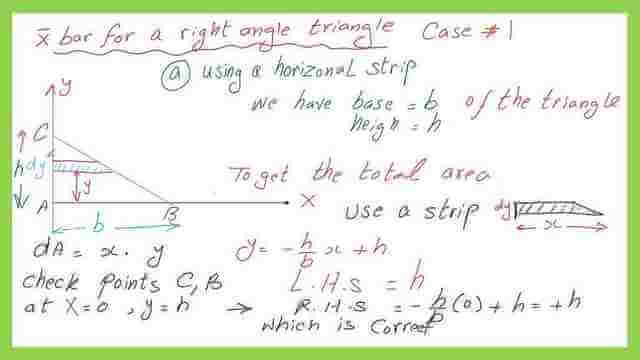 x̄ bar for a right angle triangle Case #1
ⓐ using a horizonal strip
we have base = b of the triangle
heigh = h
y
C
h dy
y
A
B
x
b
To get the total area
use a strip dy
x
dA = x. y
y = -h/b x + h
check points C, B
L.H.S = h
at x=0, y=h → R.H.S = -h/b (0) + h = +h
which is correct